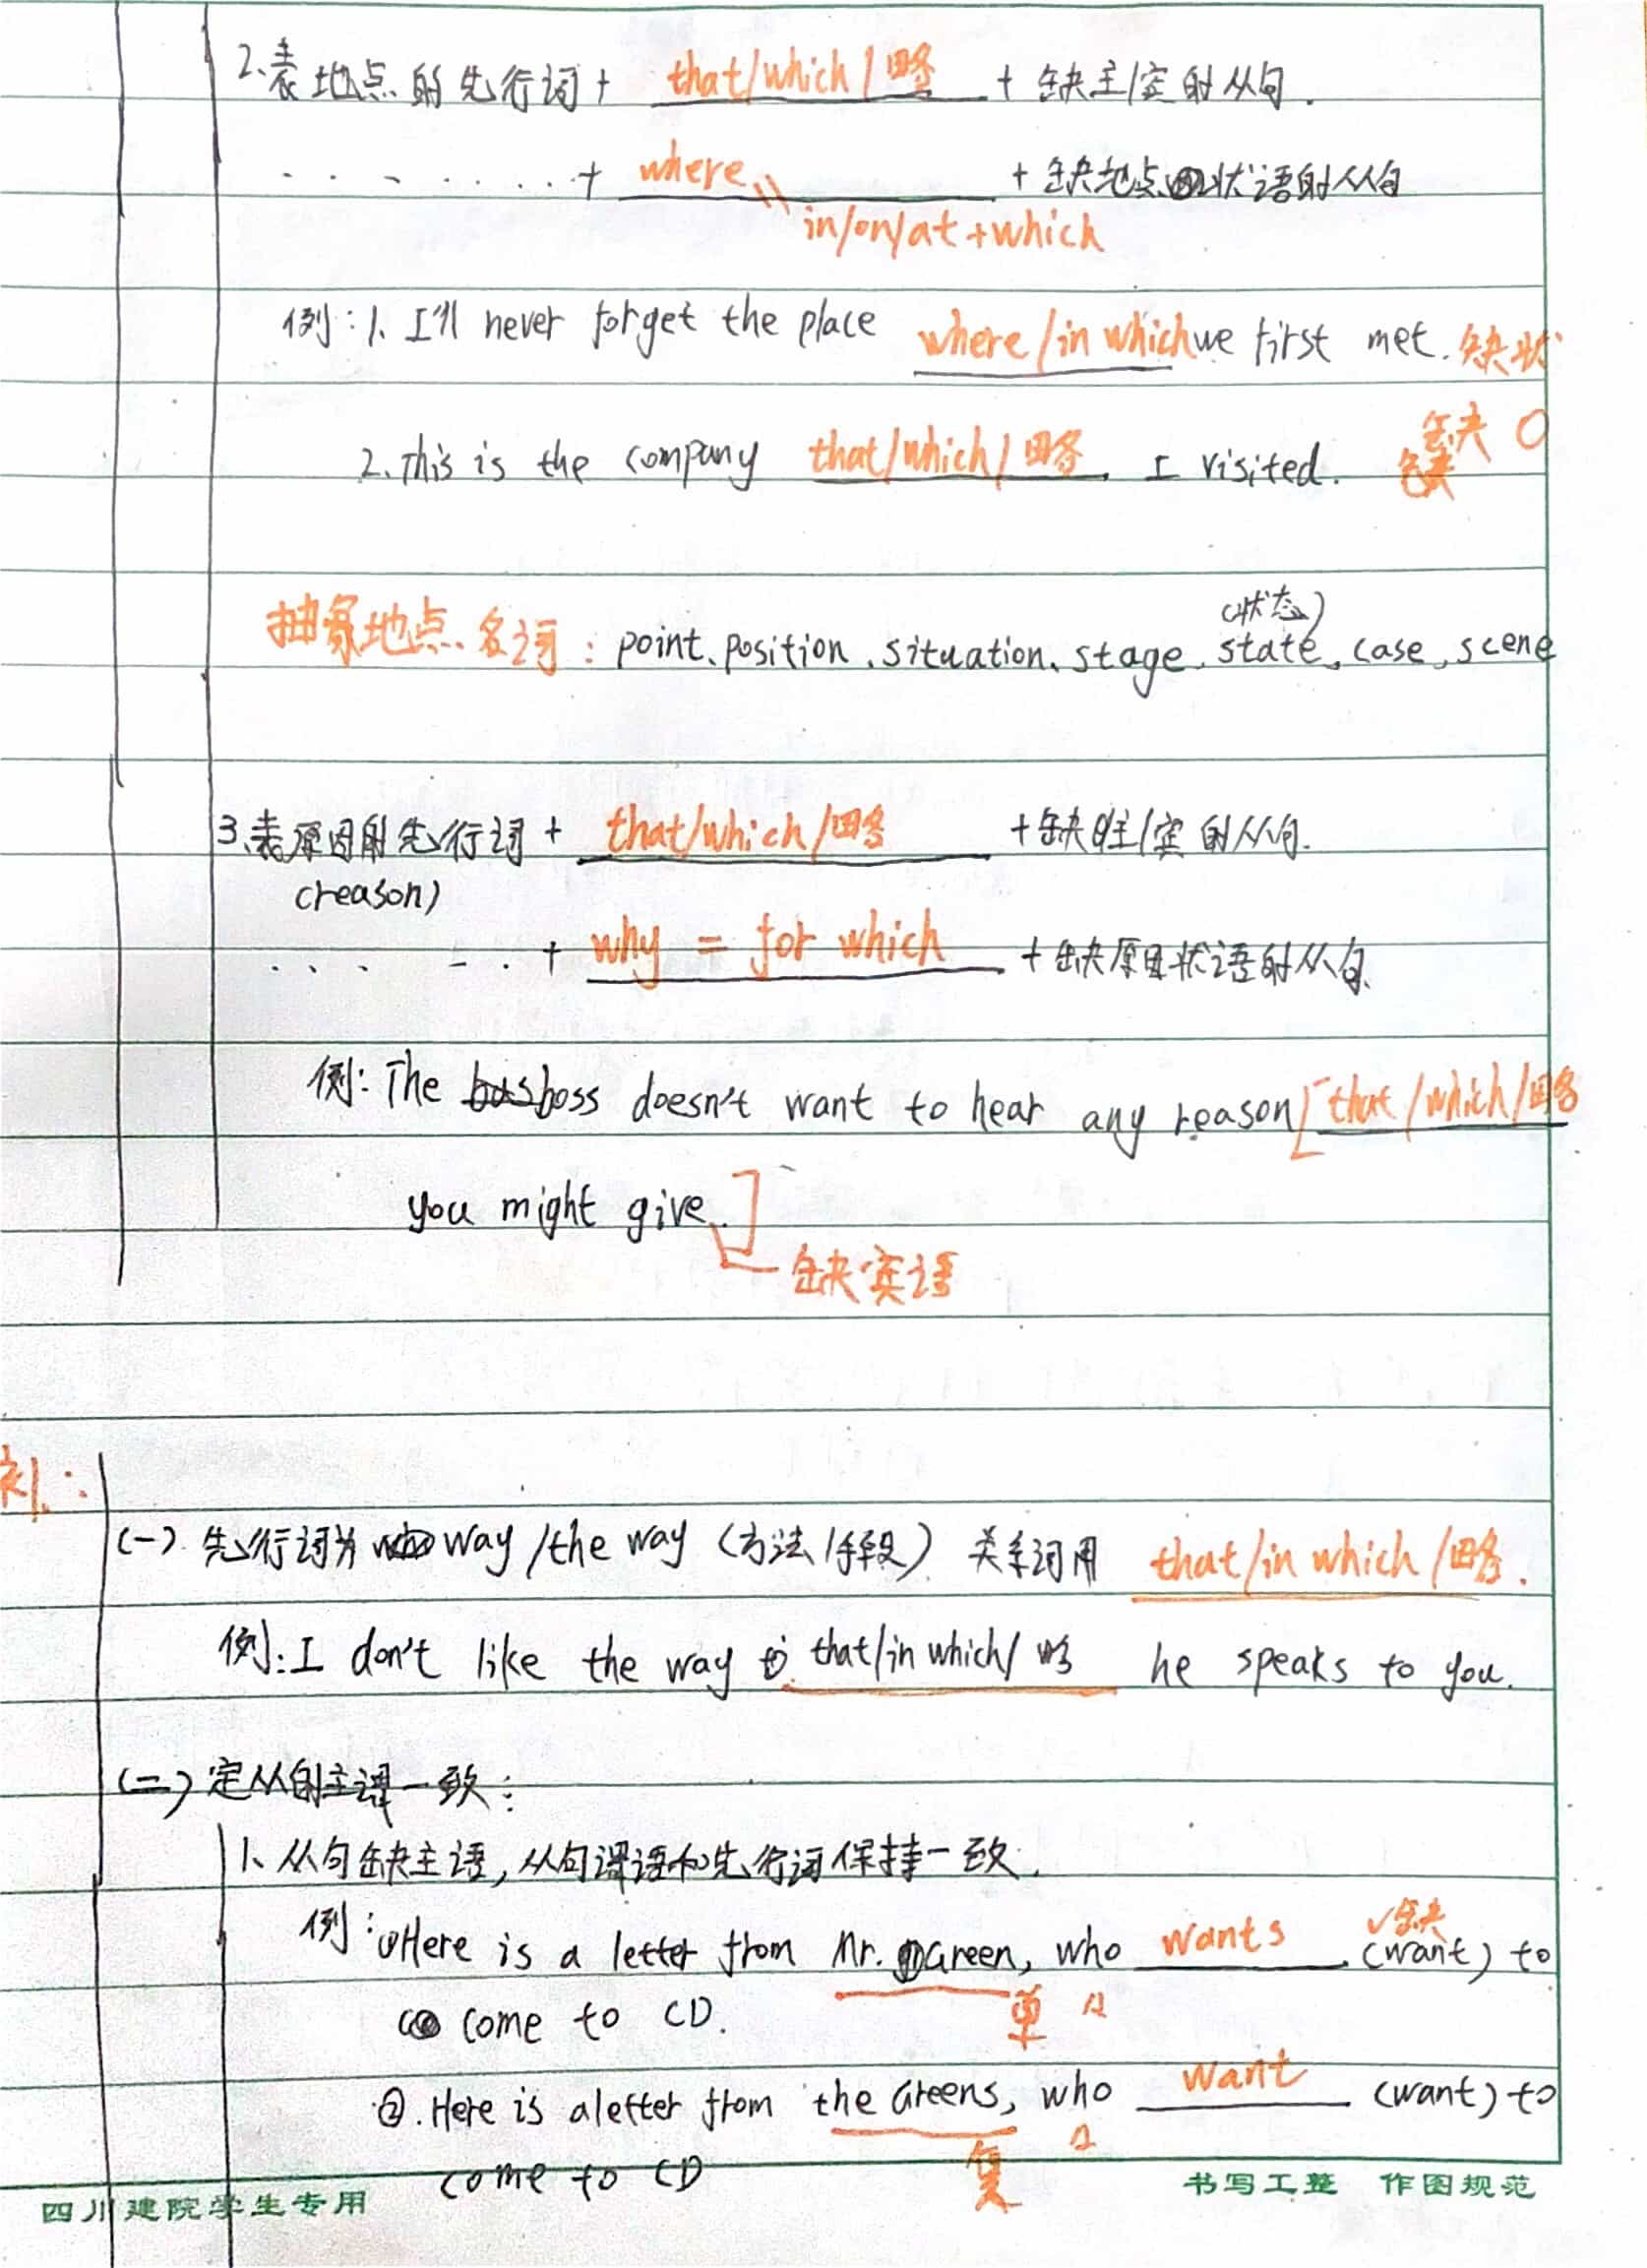 2、表地点的先行词+ that/which/略 +缺主/宾的从句.
. . . . . . . . + where +缺地点状语的从句
in/on/at+which
例:1. I'll never forget the place where/in which we first met. 缺状
2. This is the company that/which/略 I visited. 缺O
(状态)
抽象地点名词:point、position、situation、stage、state、case、scene
3、表原因的先行词+ that/which/略 +缺主/宾的从句.
(reason)
. . . . . . + why = for which +缺原因状语的从句.
例:The boss doesn't want to hear any reason [that/which/略
you might give.]
缺宾语
补:
(一)先行词为way/the way(方法/手段)关系词用 that/in which/略.
例:I don't like the way that/in which/略 he speaks to you.
(二)定从的主谓一致:
1、从句缺主语,从句谓语和先行词保持一致.
例:①Here is a letter from Mr. Green, who wants (want) to
√缺
come to CD.
单
②. Here is a letter from the Greens, who want (want) to
come to CD
复
四川建院学生专用
书写工整 作图规范